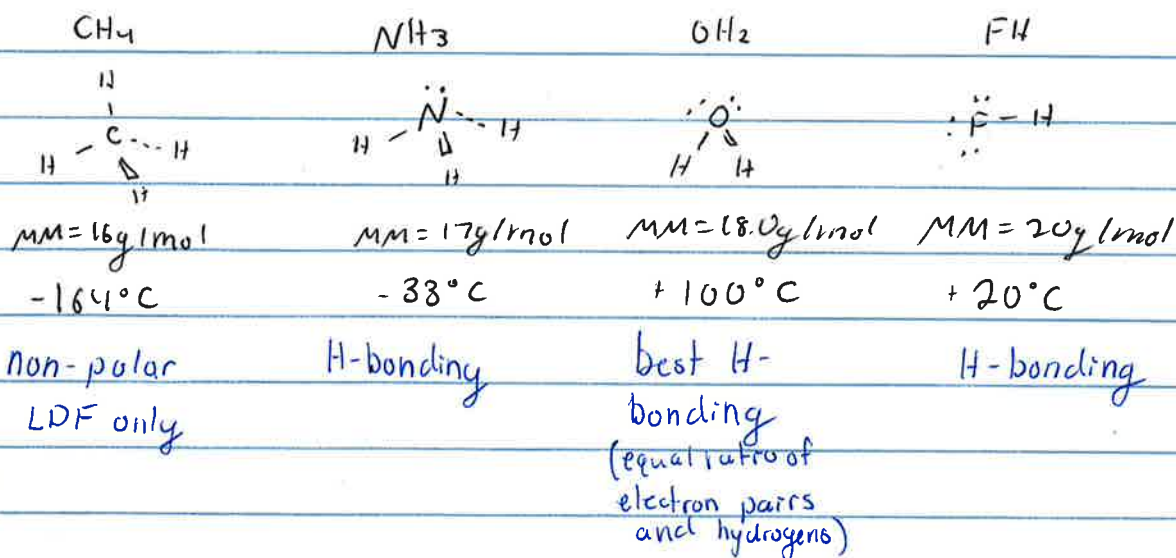 CH4 NH3 OH2 FH
H
C H H H
N H H H
O H H
F - H
MM=16g/mol MM=17g/mol MM=18.0g/mol MM=20g/mol
-164°C -33°C +100°C +20°C
non-polar H-bonding best H- H-bonding
LDF only bonding
(equal ratio of
electron pairs
and hydrogens)